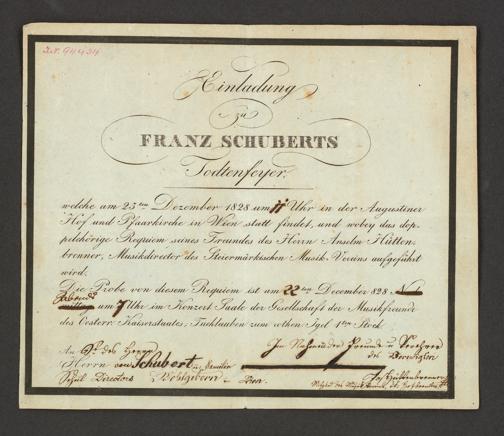 Einladung
zu
FRANZ SCHUBERTS
Todtenfeyer.
welche am 23ten Dezember 1828 um 11 Uhr in der Augustiner
Hof und Pfaarkirche in Wien statt findet, und wobey das dop-
pelchörige Requiem seines Freundes des Herrn Anselm Hütten-
brenner, Musikdirektor des Steiermärkischen Musik Vereins aufgeführt
wird.
Die Probe von diesem Requiem ist am 22ten December 828
Abends
um 7 Uhr im Konzert Saale der Gesellschaft der Musikfreunde
des Oesterr. Kaiserstaates, Tuchlauben zum rothen Igel 1ten Stock
Im Nahmen der Freunde u Verehrer
des Verewigten
An des Herrn
Herrn von Schubert
Schul Directors Wohlgeboren
Wien.
Jos Hüttenbrenner